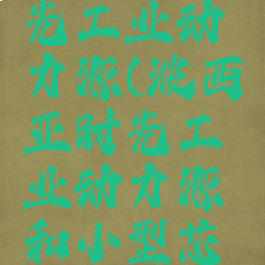 光工业动
力源(波西
亚时光工
业动力源
和小型芯